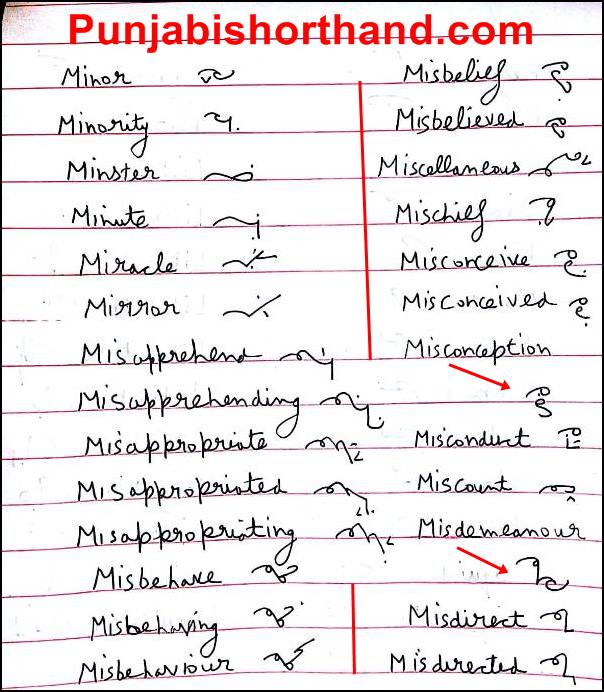 Punjabishorthand.com
Minor
Minority
Minster
Minute
Miracle
Mirror
Misapprehend
Misapprehending
Misappropriate
Misappropriated
Misappropriating
Misbehave
Misbehaving
Misbehaviour
Misbelief
Misbelieved
Miscellaneous
Mischief
Misconceive
Misconceived
Misconception
Misconduct
Miscount
Misdemeanour
Misdirect
Misdirected